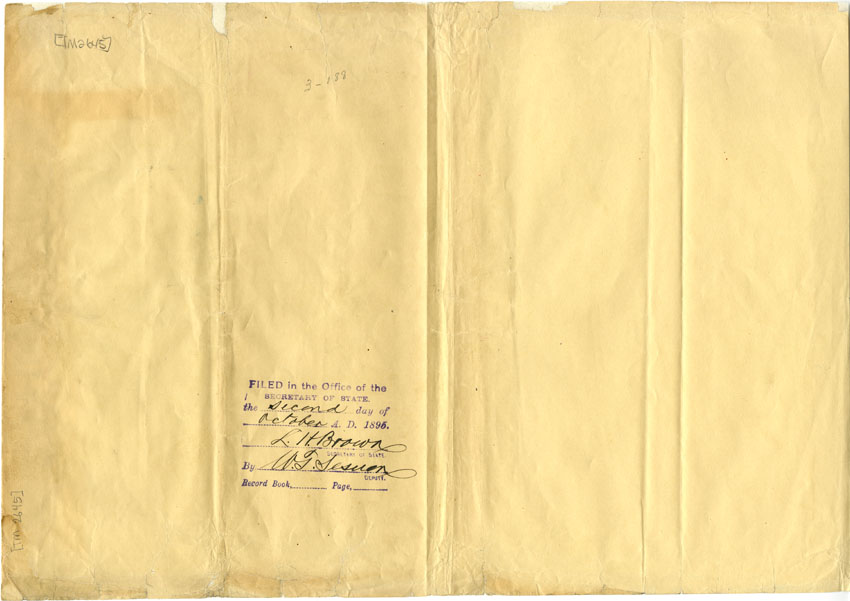 [TM2645]
3-188
FILED in the Office of the
SECRETARY OF STATE.
the second day of
October A. D. 1896.
L. H. Brown
SECRETARY OF STATE.
By
DEPUTY.
Record Book, Page,
[TM 2645]